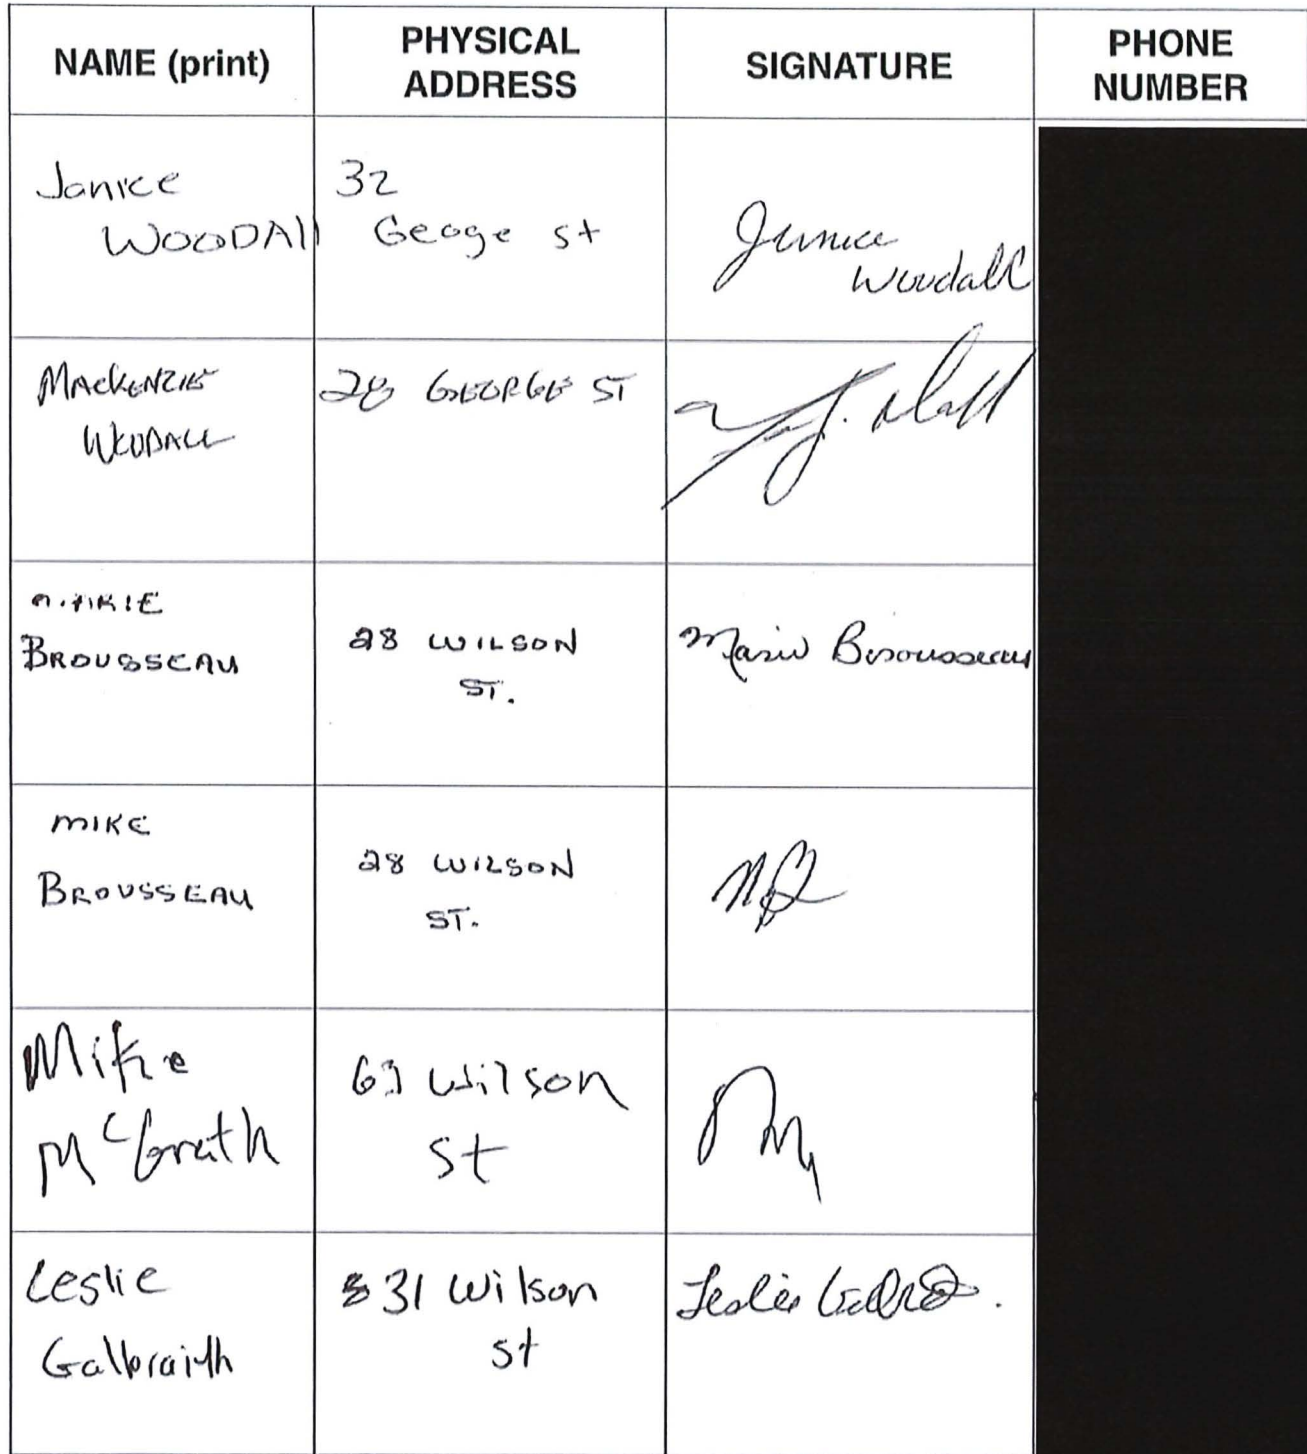 NAME (print)
PHYSICAL
ADDRESS
SIGNATURE
PHONE
NUMBER
Janice
WOODAll
32
Geoge st
Junice
Woodall
MACKENZIE
WOODALL
28 GEORGE ST
MARIE
BROUSSEAU
28 WILSON
ST.
Marie Brousseau
MIKE
BROUSSEAU
28 WILSON
ST.
Mike
McGrath
63 Wilson
St
Leslie
Galbraith
31 Wilson
st
Leslie